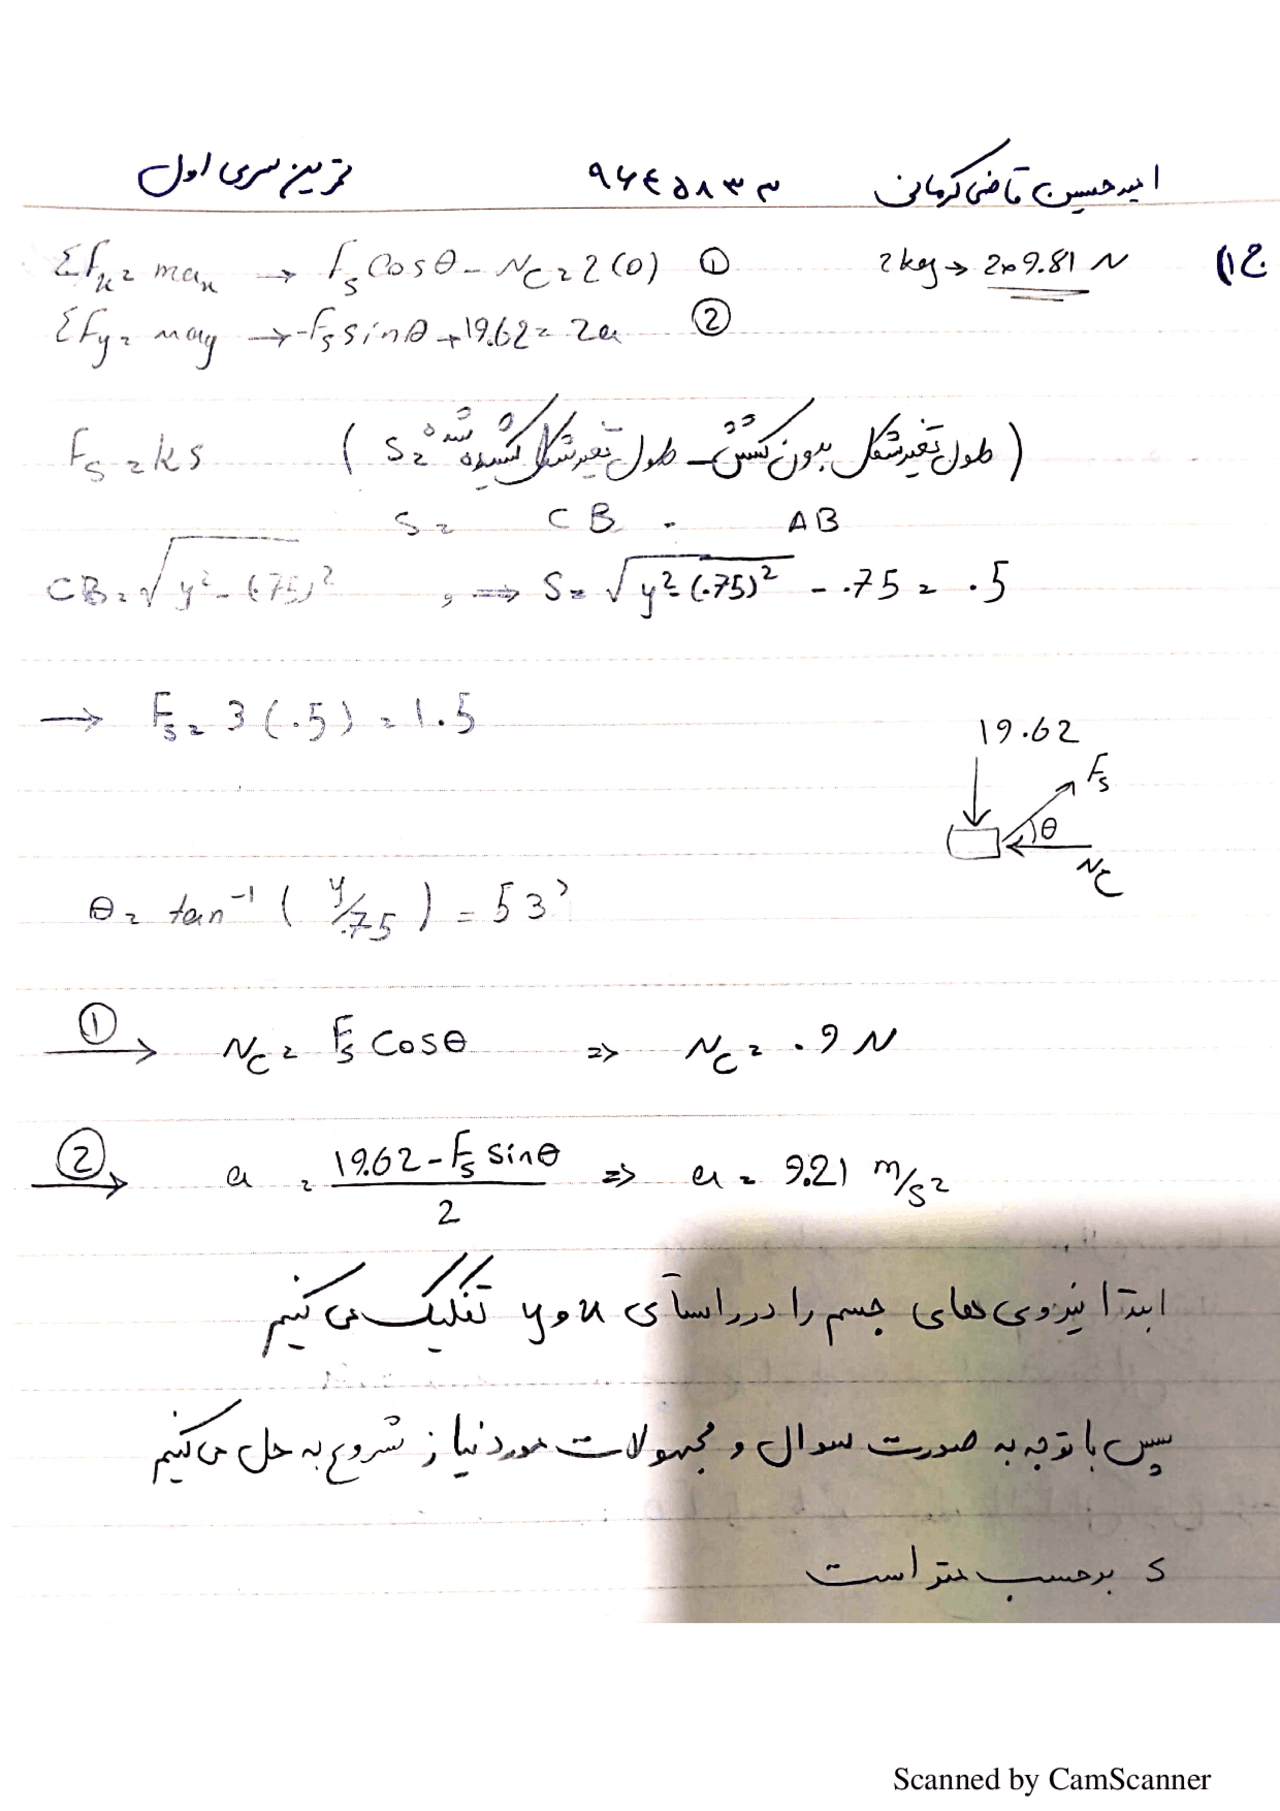 امیدحسین قاضی کرمانی ۹۶۴۵۸۳۳ تمرین سری اول
ج ۱) 2kg → 2×9.81 N
ΣFx = max → Fs Cosθ - Nc = 2(0) ①
ΣFy = may → -Fs sinθ + 19.62 = 2a ②
Fs = ks ( S = طول تغیر شکل کشیده شده - طول تغیر شکل بدون کشش )
S = CB - AB
CB = √y² - (.75)² , ⇒ S = √y² - (.75)² - .75 = .5
→ Fs = 3 (.5) = 1.5
19.62
Fs
θ
Nc
θ = tan⁻¹ ( y/.75 ) = 53°
① → Nc = Fs Cosθ ⇒ Nc = .9 N
② → a = (19.62 - Fs sinθ)/2 ⇒ a = 9.21 m/s²
ابتدا نیروی های جسم را در راستای x و y تفکیک می کنیم
سپس با توجه به صورت سوال و مجهولات مورد نیاز شروع به حل می کنیم
S برحسب متر است
Scanned by CamScanner